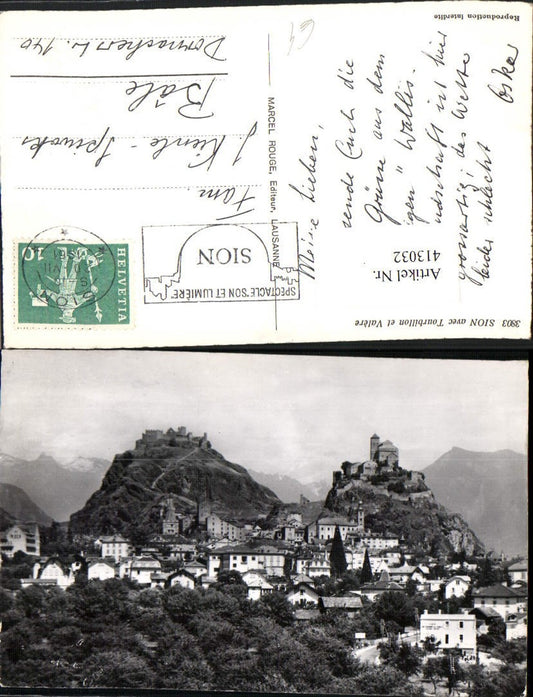 3803 SION avec Tourbillon et Valère
Meine Lieben,
sende Euch die
Grüsse aus dem
"gen" Wallis.
ndschaft ist hier
grossartig; das Wetter
leider schlecht
Oskar
Artikel Nr.
413032
MARCEL ROUGE, Editeur, LAUSANNE
Reproduction interdite
SION
SPECTACLE "SON ET LUMIÈRE"
HELVETIA
10
SION
Fam.
J. Kienle-
Bâle
Dornacherstr. 140